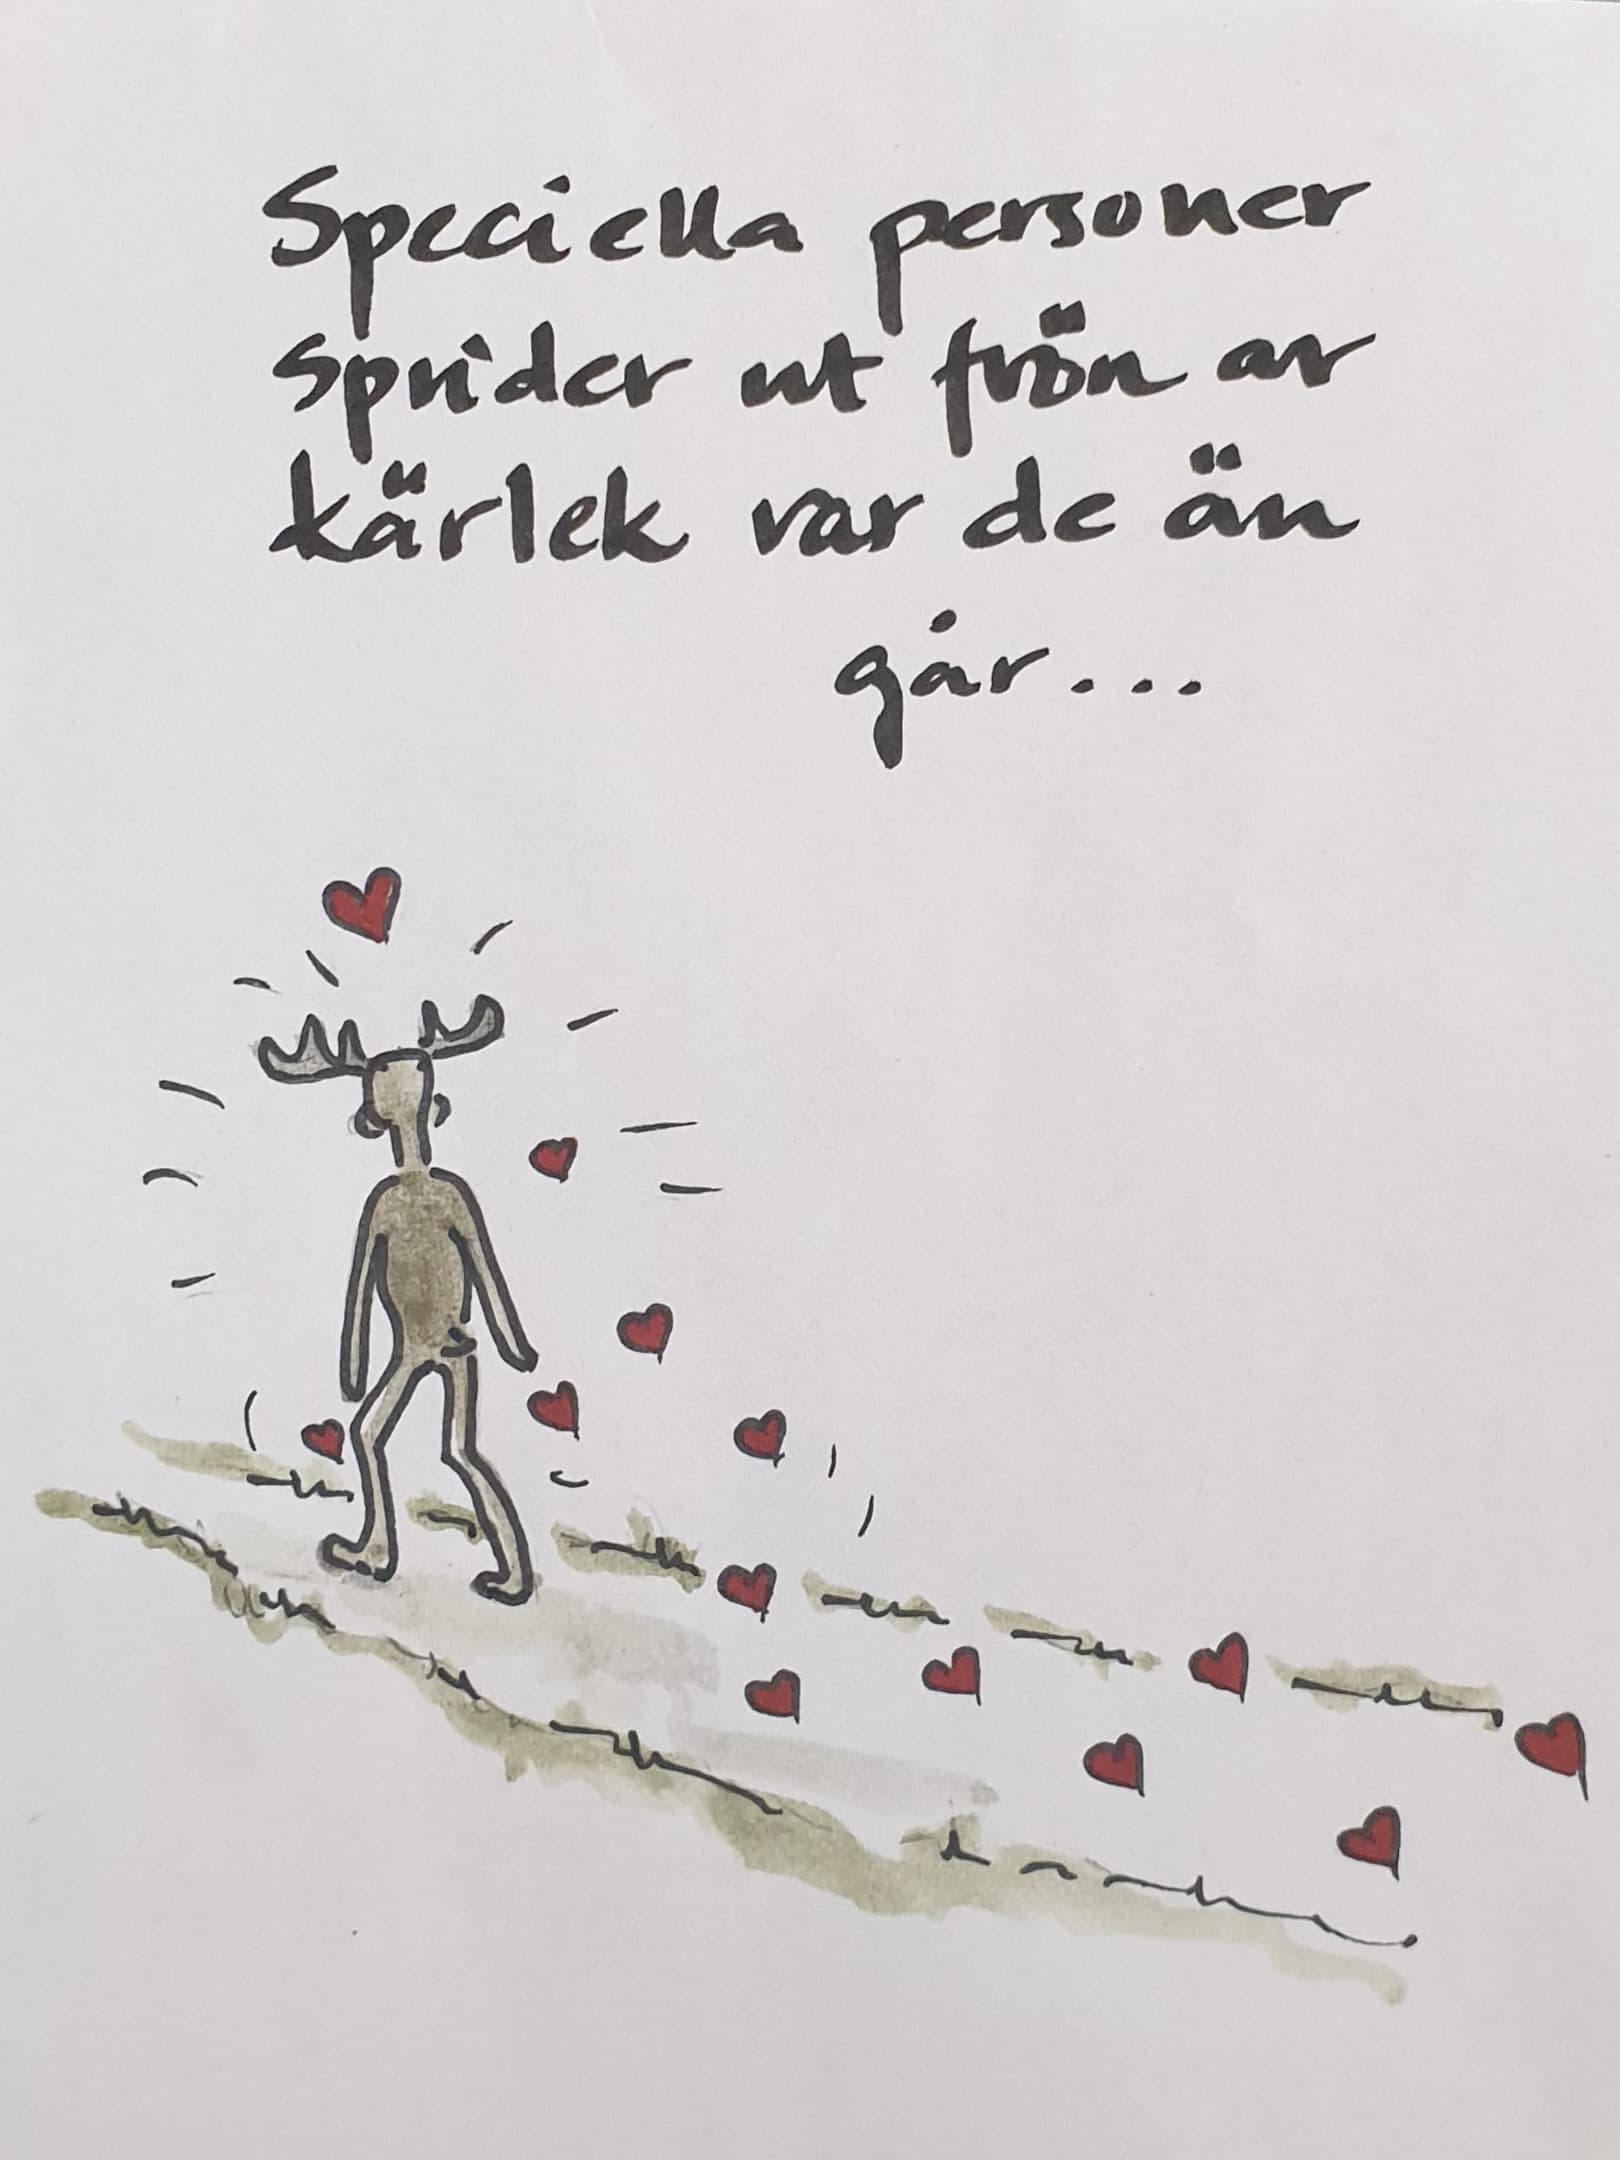 Speciella personer
sprider ut frön av
kärlek var de än
går...